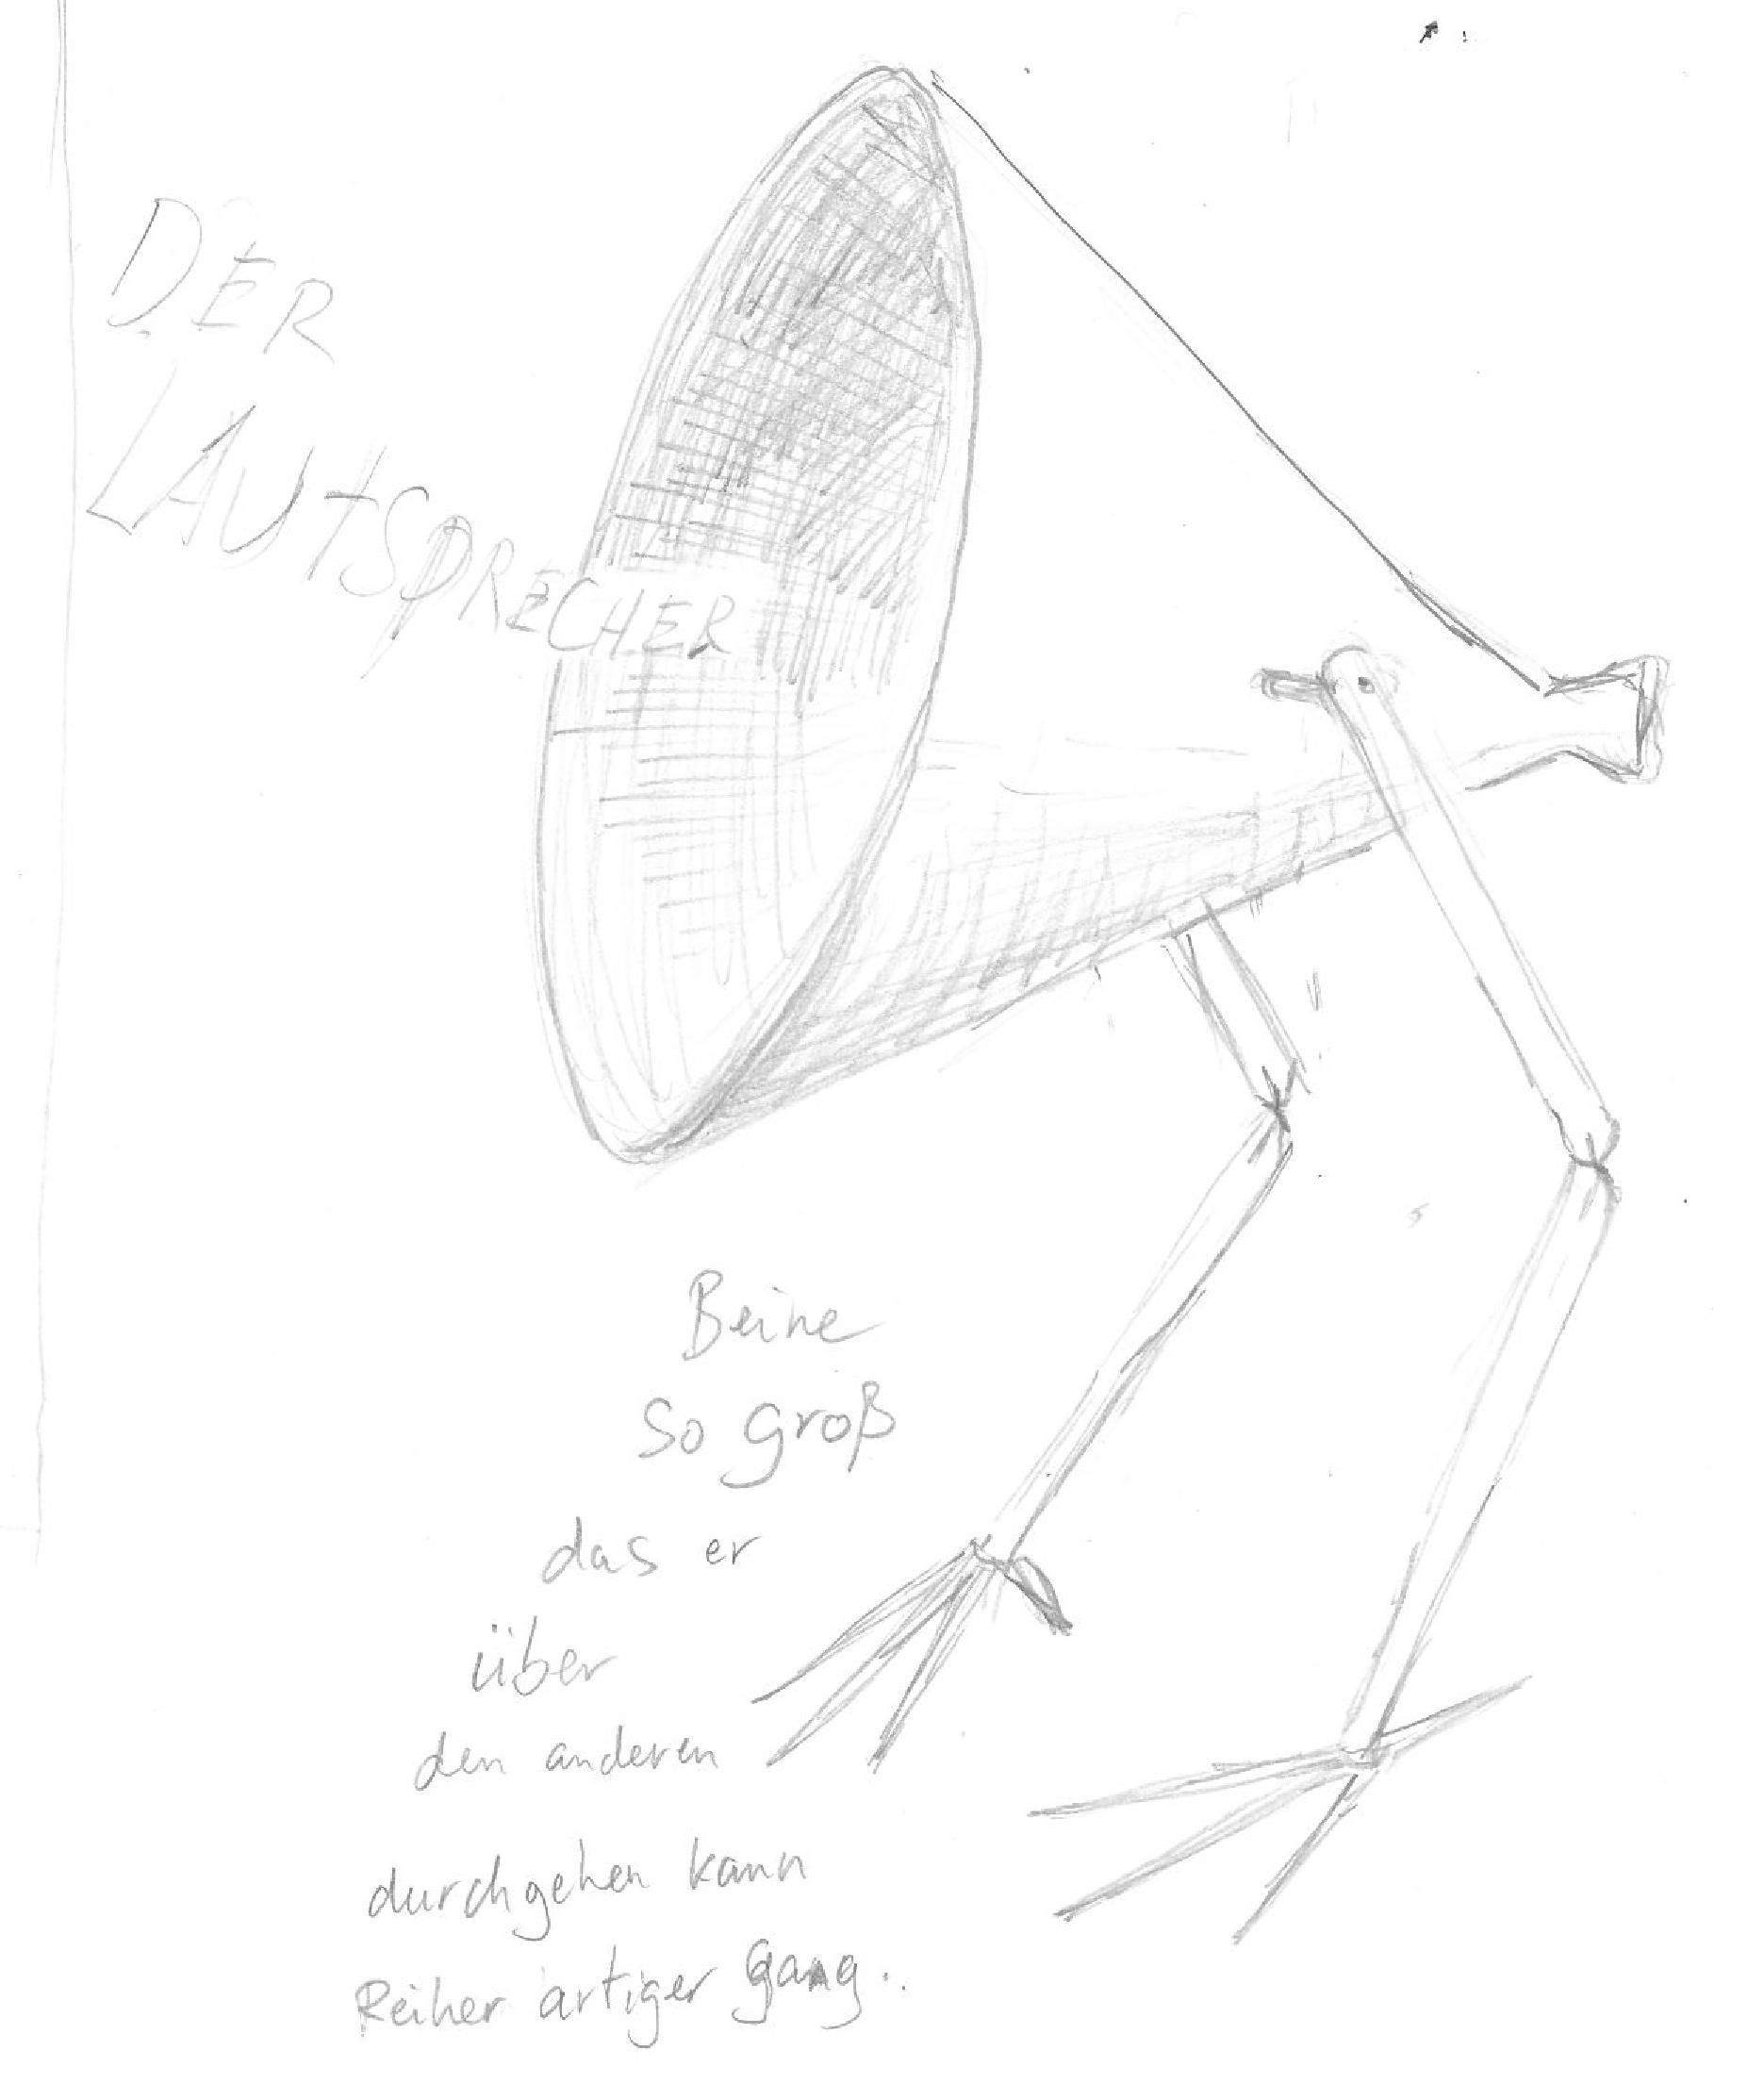 DER
LAUTSPRECHER
Beine
so groß
das er
über
den anderen
durchgehen kann
Reiher artiger gang..